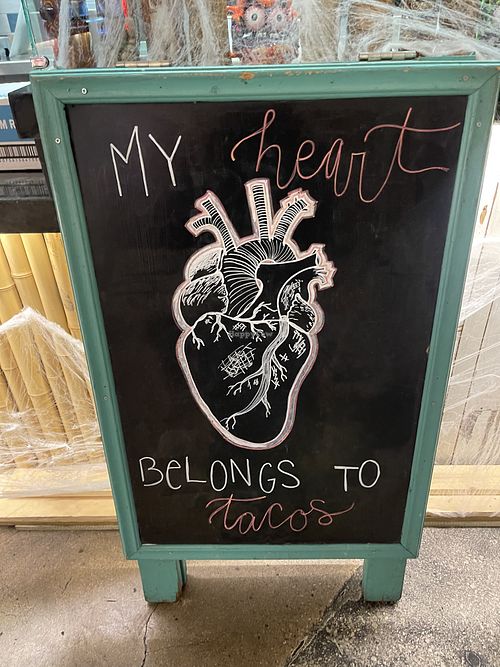 MY heart
BELONGS TO
tacos